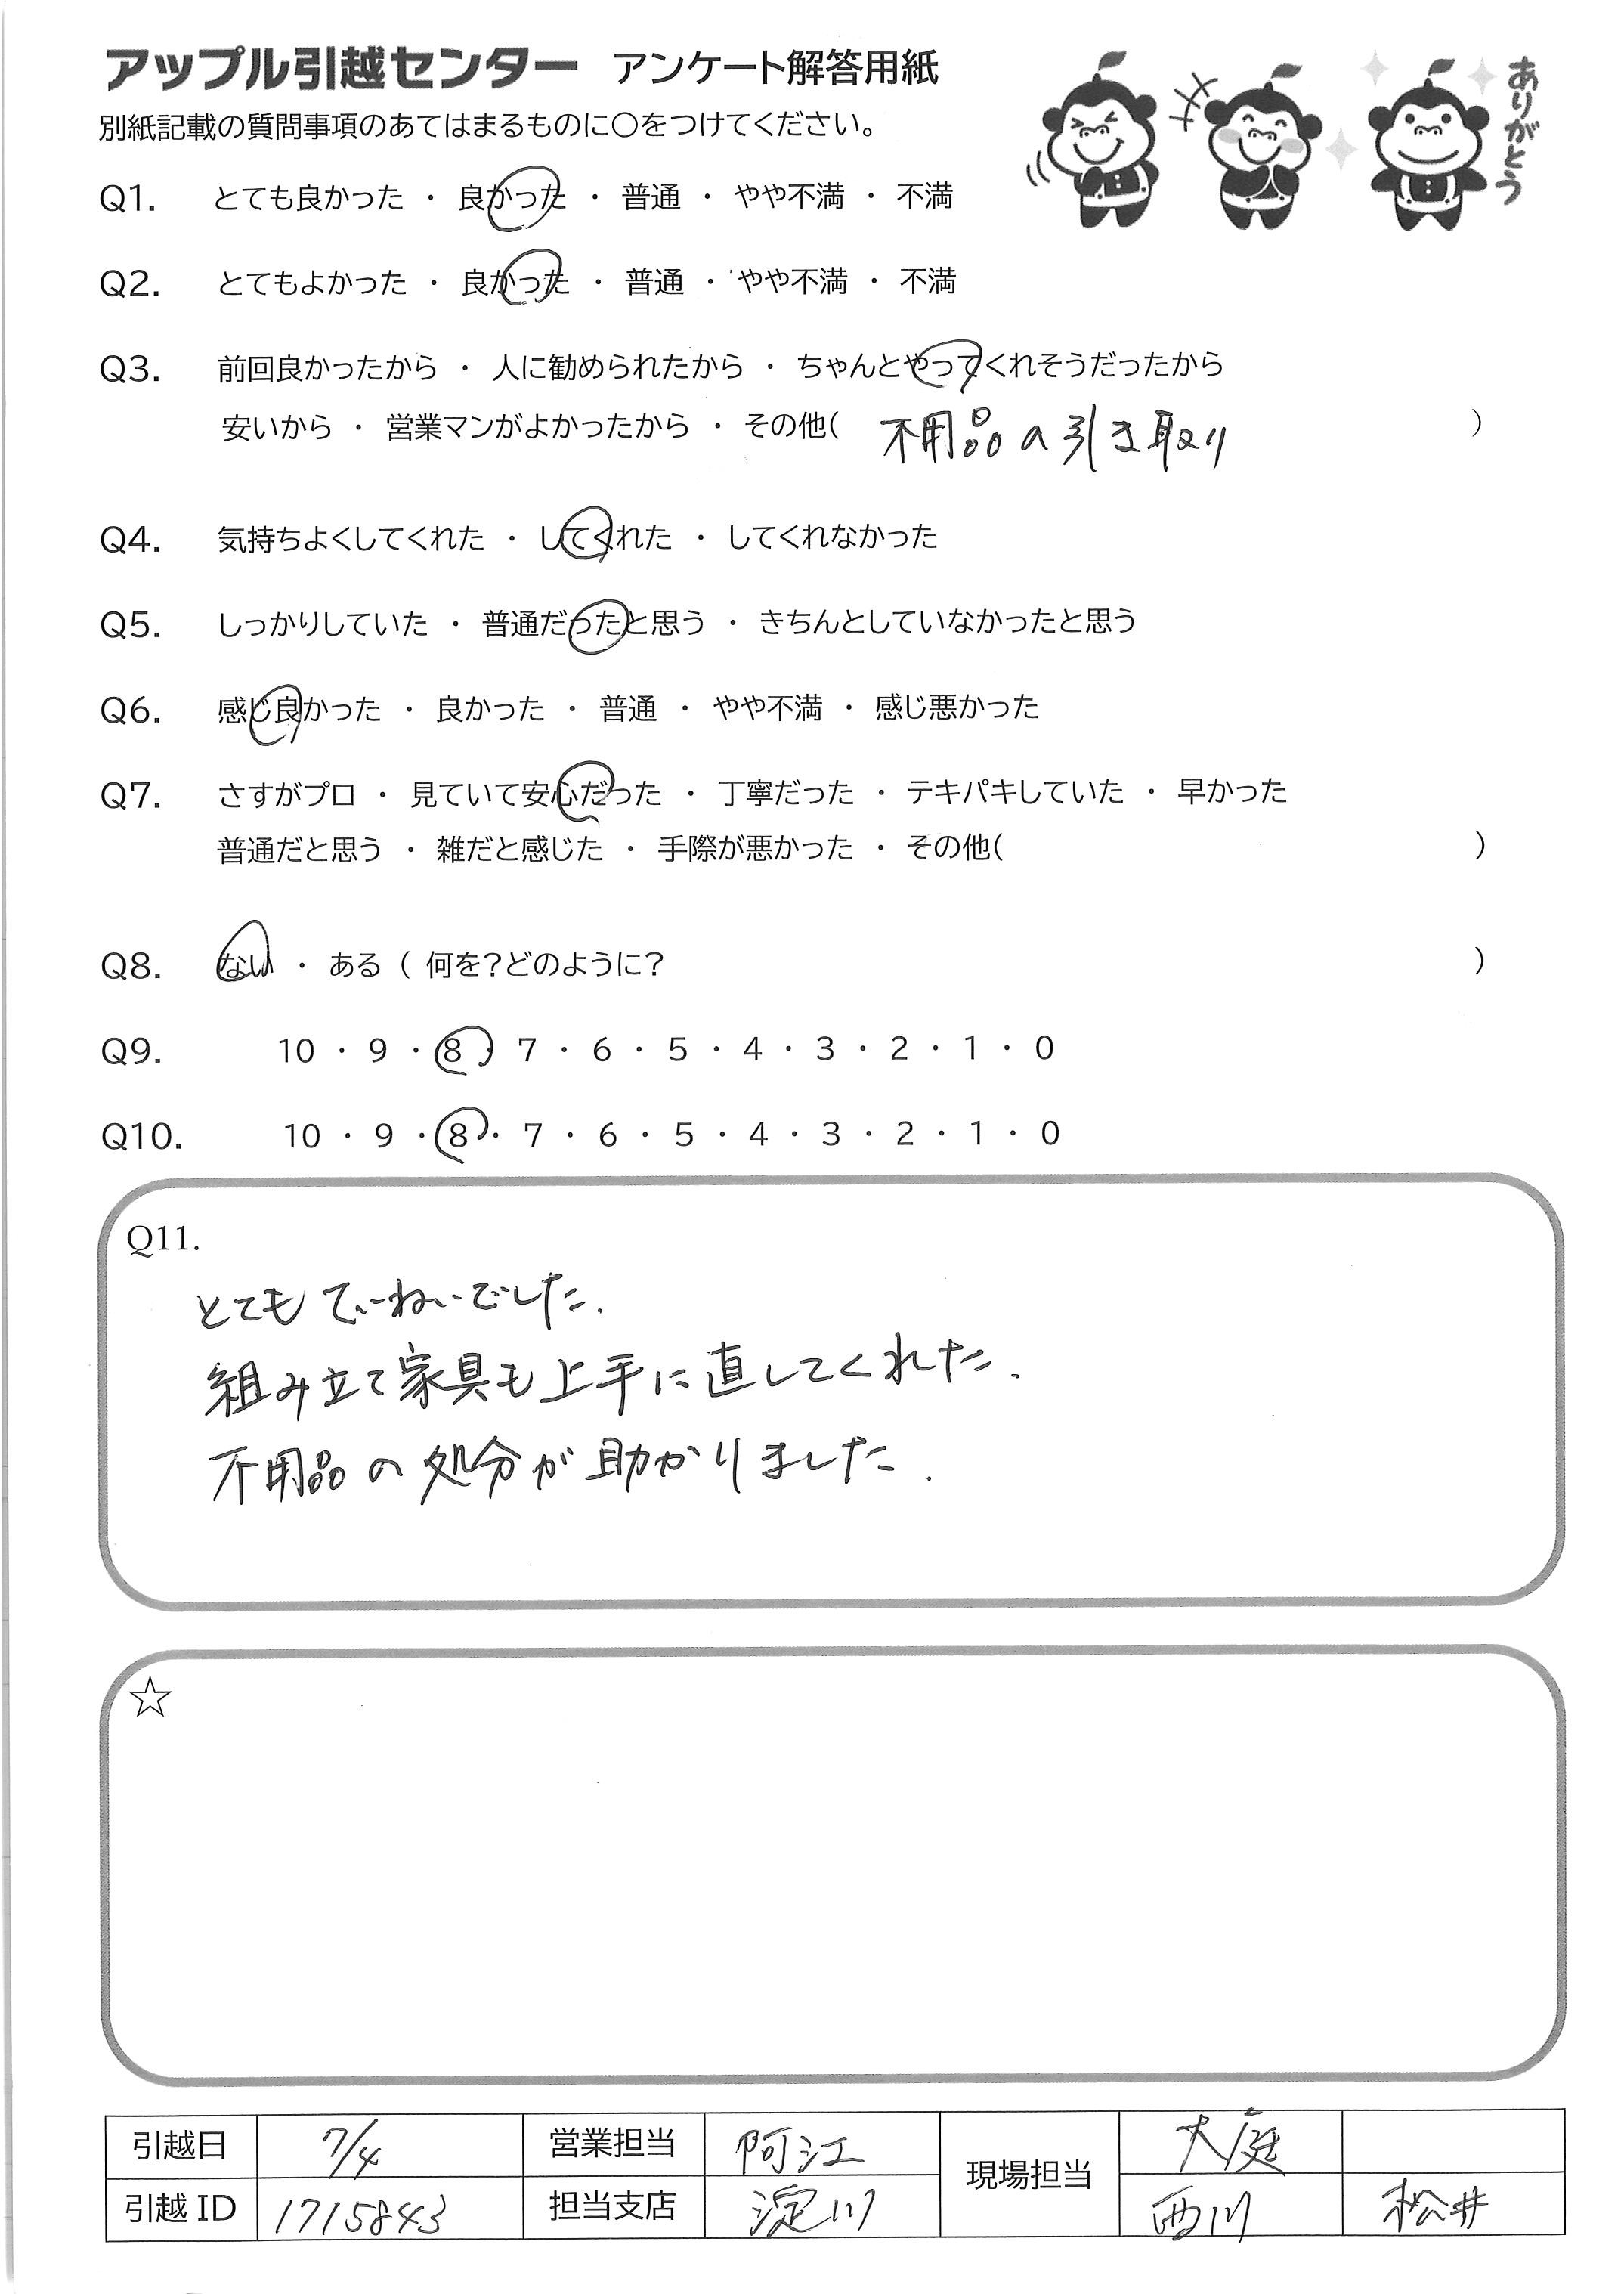 アップル引越センター アンケート解答用紙
ありがとう
別紙記載の質問事項のあてはまるものに○をつけてください。
Q1. とても良かった ・ 良かった ・ 普通 ・ やや不満 ・ 不満
Q2. とてもよかった ・ 良かった ・ 普通 ・ やや不満 ・ 不満
Q3. 前回良かったから ・ 人に勧められたから ・ ちゃんとやってくれそうだったから
安いから ・ 営業マンがよかったから ・ その他( 不用品の引き取り )
Q4. 気持ちよくしてくれた ・ してくれた ・ してくれなかった
Q5. しっかりしていた ・ 普通だったと思う ・ きちんとしていなかったと思う
Q6. 感じ良かった ・ 良かった ・ 普通 ・ やや不満 ・ 感じ悪かった
Q7. さすがプロ ・ 見ていて安心だった ・ 丁寧だった ・ テキパキしていた ・ 早かった
普通だと思う ・ 雑だと感じた ・ 手際が悪かった ・ その他( )
Q8. ない ・ ある ( 何を?どのように? )
Q9. 10 ・ 9 ・ 8 ・ 7 ・ 6 ・ 5 ・ 4 ・ 3 ・ 2 ・ 1 ・ 0
Q10. 10 ・ 9 ・ 8 ・ 7 ・ 6 ・ 5 ・ 4 ・ 3 ・ 2 ・ 1 ・ 0
Q11.
とても てぃーねぃでした.
組み立て家具も上手に直してくれた.
不用品の処分が助かりました.
☆
引越日 7/4 営業担当 阿江 現場担当 大庭
引越 ID 1715843 担当支店 淀川 西川 松井